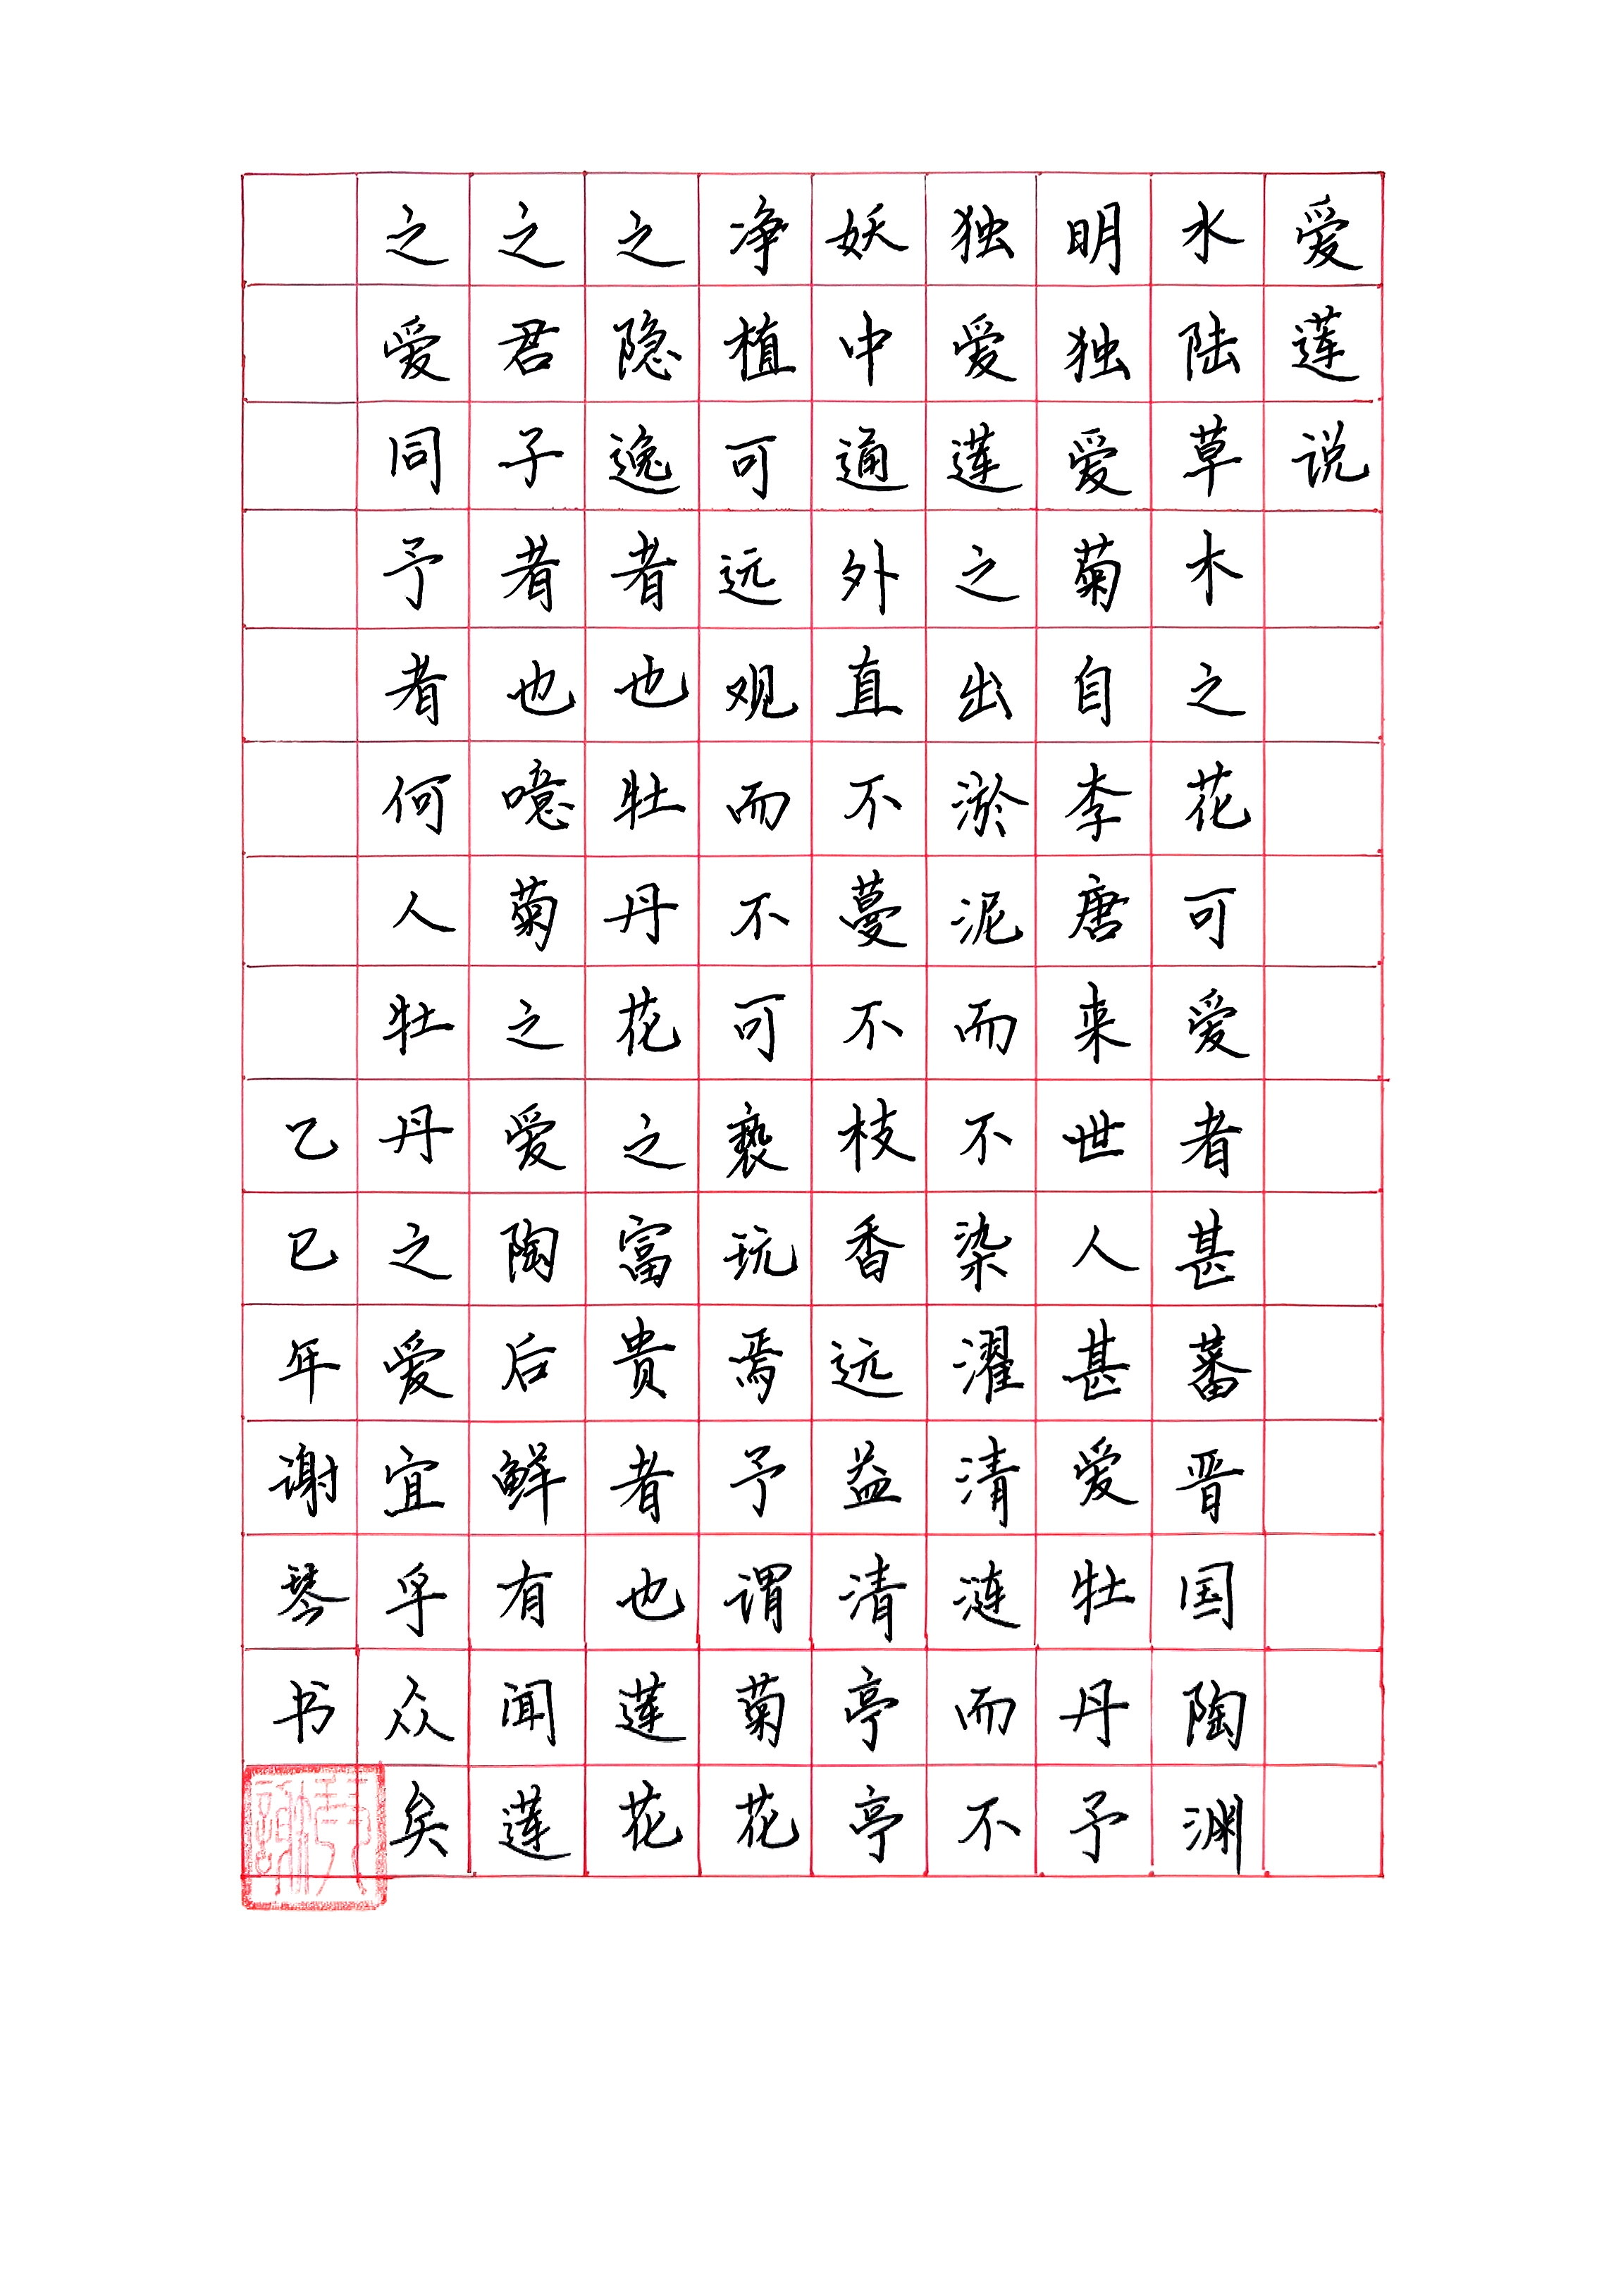 爱莲说
水陆草木之花可爱者甚蕃晋国陶渊
明独爱菊自李唐来世人甚爱牡丹予
独爱莲之出淤泥而不染濯清涟而不
妖中通外直不蔓不枝香远益清亭亭
净植可远观而不可亵玩焉予谓菊花
之隐逸者也牡丹花之富贵者也莲花
之君子者也噫菊之爱陶后鲜有闻莲
之爱同予者何人牡丹之爱宜乎众矣
乙巳年谢琴书